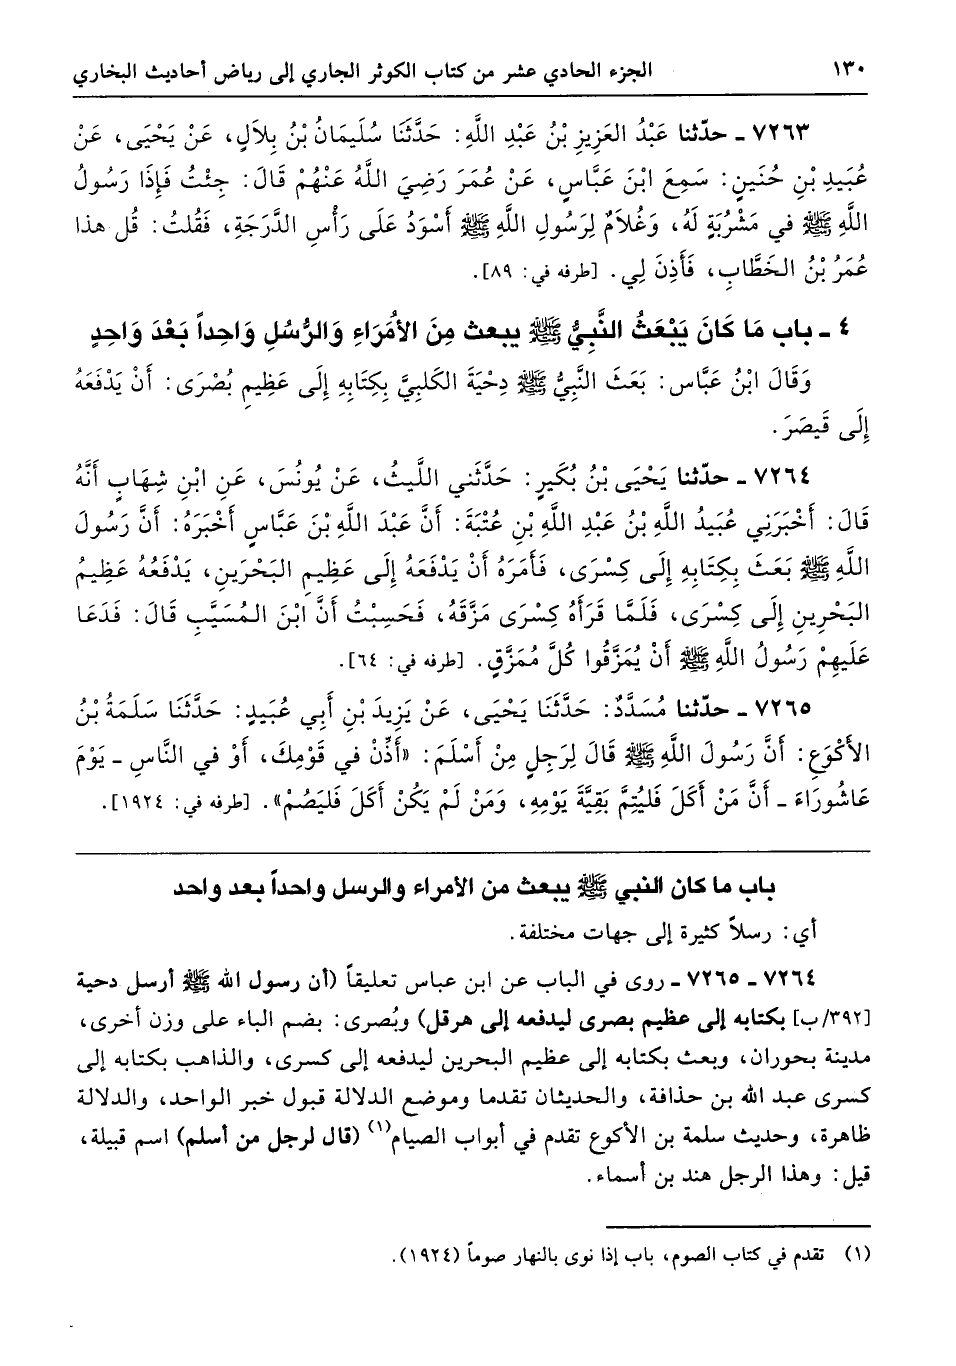 ١٣٠ الجزء الحادي عشر من كتاب الكوثر الجاري إلى رياض أحاديث البخاري
٧٢٦٣ ـ حدّثنا عَبْدُ العَزِيزِ بْنُ عَبْدِ اللَّهِ: حَدَّثَنَا سُلَيمَانُ بْنُ بِلاَلٍ، عَنْ يَحْيَى، عَنْ
عُبَيدِ بْنِ حُنَينٍ: سَمِعَ ابْنَ عَبَّاسٍ، عَنْ عُمَرَ رَضِيَ اللَّهُ عَنْهُمْ قَالَ: جِئْتُ فَإِذَا رَسُولُ
اللَّهِ ﷺ في مَشْرُبَةٍ لَهُ، وَغُلاَمٌ لِرَسُولِ اللَّهِ ﷺ أَسْوَدُ عَلَى رَأْسِ الدَّرَجَةِ، فَقُلتُ: قُل هذا
عُمَرُ بْنُ الخَطَّابِ، فَأَذِنَ لِي. [طرفه في: ٨٩].
٤ ـ باب مَا كَانَ يَبْعَثُ النَّبِيُّ ﷺ يبعث مِنَ الأُمَرَاءِ وَالرُّسُلِ وَاحِداً بَعْدَ وَاحِدٍ
وَقَالَ ابْنُ عَبَّاس: بَعَثَ النَّبِيُّ ﷺ دِحْيَةَ الكَلبِيَّ بِكِتَابِهِ إِلَى عَظِيمِ بُصْرَى: أَنْ يَدْفَعَهُ
إِلَى قَيصَرَ.
٧٢٦٤ ـ حدّثنا يَحْيَى بْنُ بُكَيرٍ: حَدَّثَني اللَّيثُ، عَنْ يُونُسَ، عَنِ ابْنِ شِهَابٍ أَنَّهُ
قَالَ: أَخْبَرَنِي عُبَيدُ اللَّهِ بْنُ عَبْدِ اللَّهِ بْنِ عُتْبَةَ: أَنَّ عَبْدَ اللَّهِ بْنَ عَبَّاسٍ أَخْبَرَهُ: أَنَّ رَسُولَ
اللَّهِ ﷺ بَعَثَ بِكِتَابِهِ إِلَى كِسْرَى، فَأَمَرَهُ أَنْ يَدْفَعَهُ إِلَى عَظِيمِ البَحْرَينِ، يَدْفَعُهُ عَظِيمُ
البَحْرِينِ إِلَى كِسْرَى، فَلَمَّا قَرَأَهُ كِسْرَى مَزَّقَهُ، فَحَسِبْتُ أَنَّ ابْنَ المُسَيَّبِ قَالَ: فَدَعَا
عَلَيهِمْ رَسُولُ اللَّهِ ﷺ أَنْ يُمَزَّقُوا كُلَّ مُمَزَّقٍ. [طرفه في: ٦٤].
٧٢٦٥ ـ حدّثنا مُسَدَّدٌ: حَدَّثَنَا يَحْيَى، عَنْ يَزِيدَ بْنِ أَبِي عُبَيدٍ: حَدَّثَنَا سَلَمَةُ بْنُ
الأَكْوَعِ: أَنَّ رَسُولَ اللَّهِ ﷺ قَالَ لِرَجلٍ مِنْ أَسْلَمَ: «أَذِّنْ في قَوْمِكَ، أَوْ في النَّاسِ ـ يَوْمَ
عَاشُورَاءَ ـ أَنَّ مَنْ أَكَلَ فَليُتِمَّ بَقِيَّةَ يَوْمِهِ، وَمَنْ لَمْ يَكُنْ أَكَلَ فَليَصُمْ». [طرفه في: ١٩٢٤].
باب ما كان النبي ﷺ يبعث من الأمراء والرسل واحداً بعد واحد
أي: رسلاً كثيرة إلى جهات مختلفة.
٧٢٦٤ ـ ٧٢٦٥ ـ روى في الباب عن ابن عباس تعليقاً (أن رسول الله ﷺ أرسل دحية
[٣٩٢/ب] بكتابه إلى عظيم بصرى ليدفعه إلى هرقل) وبُصرى: بضم الباء على وزن أخرى،
مدينة بحوران، وبعث بكتابه إلى عظيم البحرين ليدفعه إلى كسرى، والذاهب بكتابه إلى
كسرى عبد الله بن حذافة، والحديثان تقدما وموضع الدلالة قبول خبر الواحد، والدلالة
ظاهرة، وحديث سلمة بن الأكوع تقدم في أبواب الصيام(١) (قال لرجل من أسلم) اسم قبيلة،
قيل: وهذا الرجل هند بن أسماء.
(١) تقدم في كتاب الصوم، باب إذا نوى بالنهار صوماً (١٩٢٤).